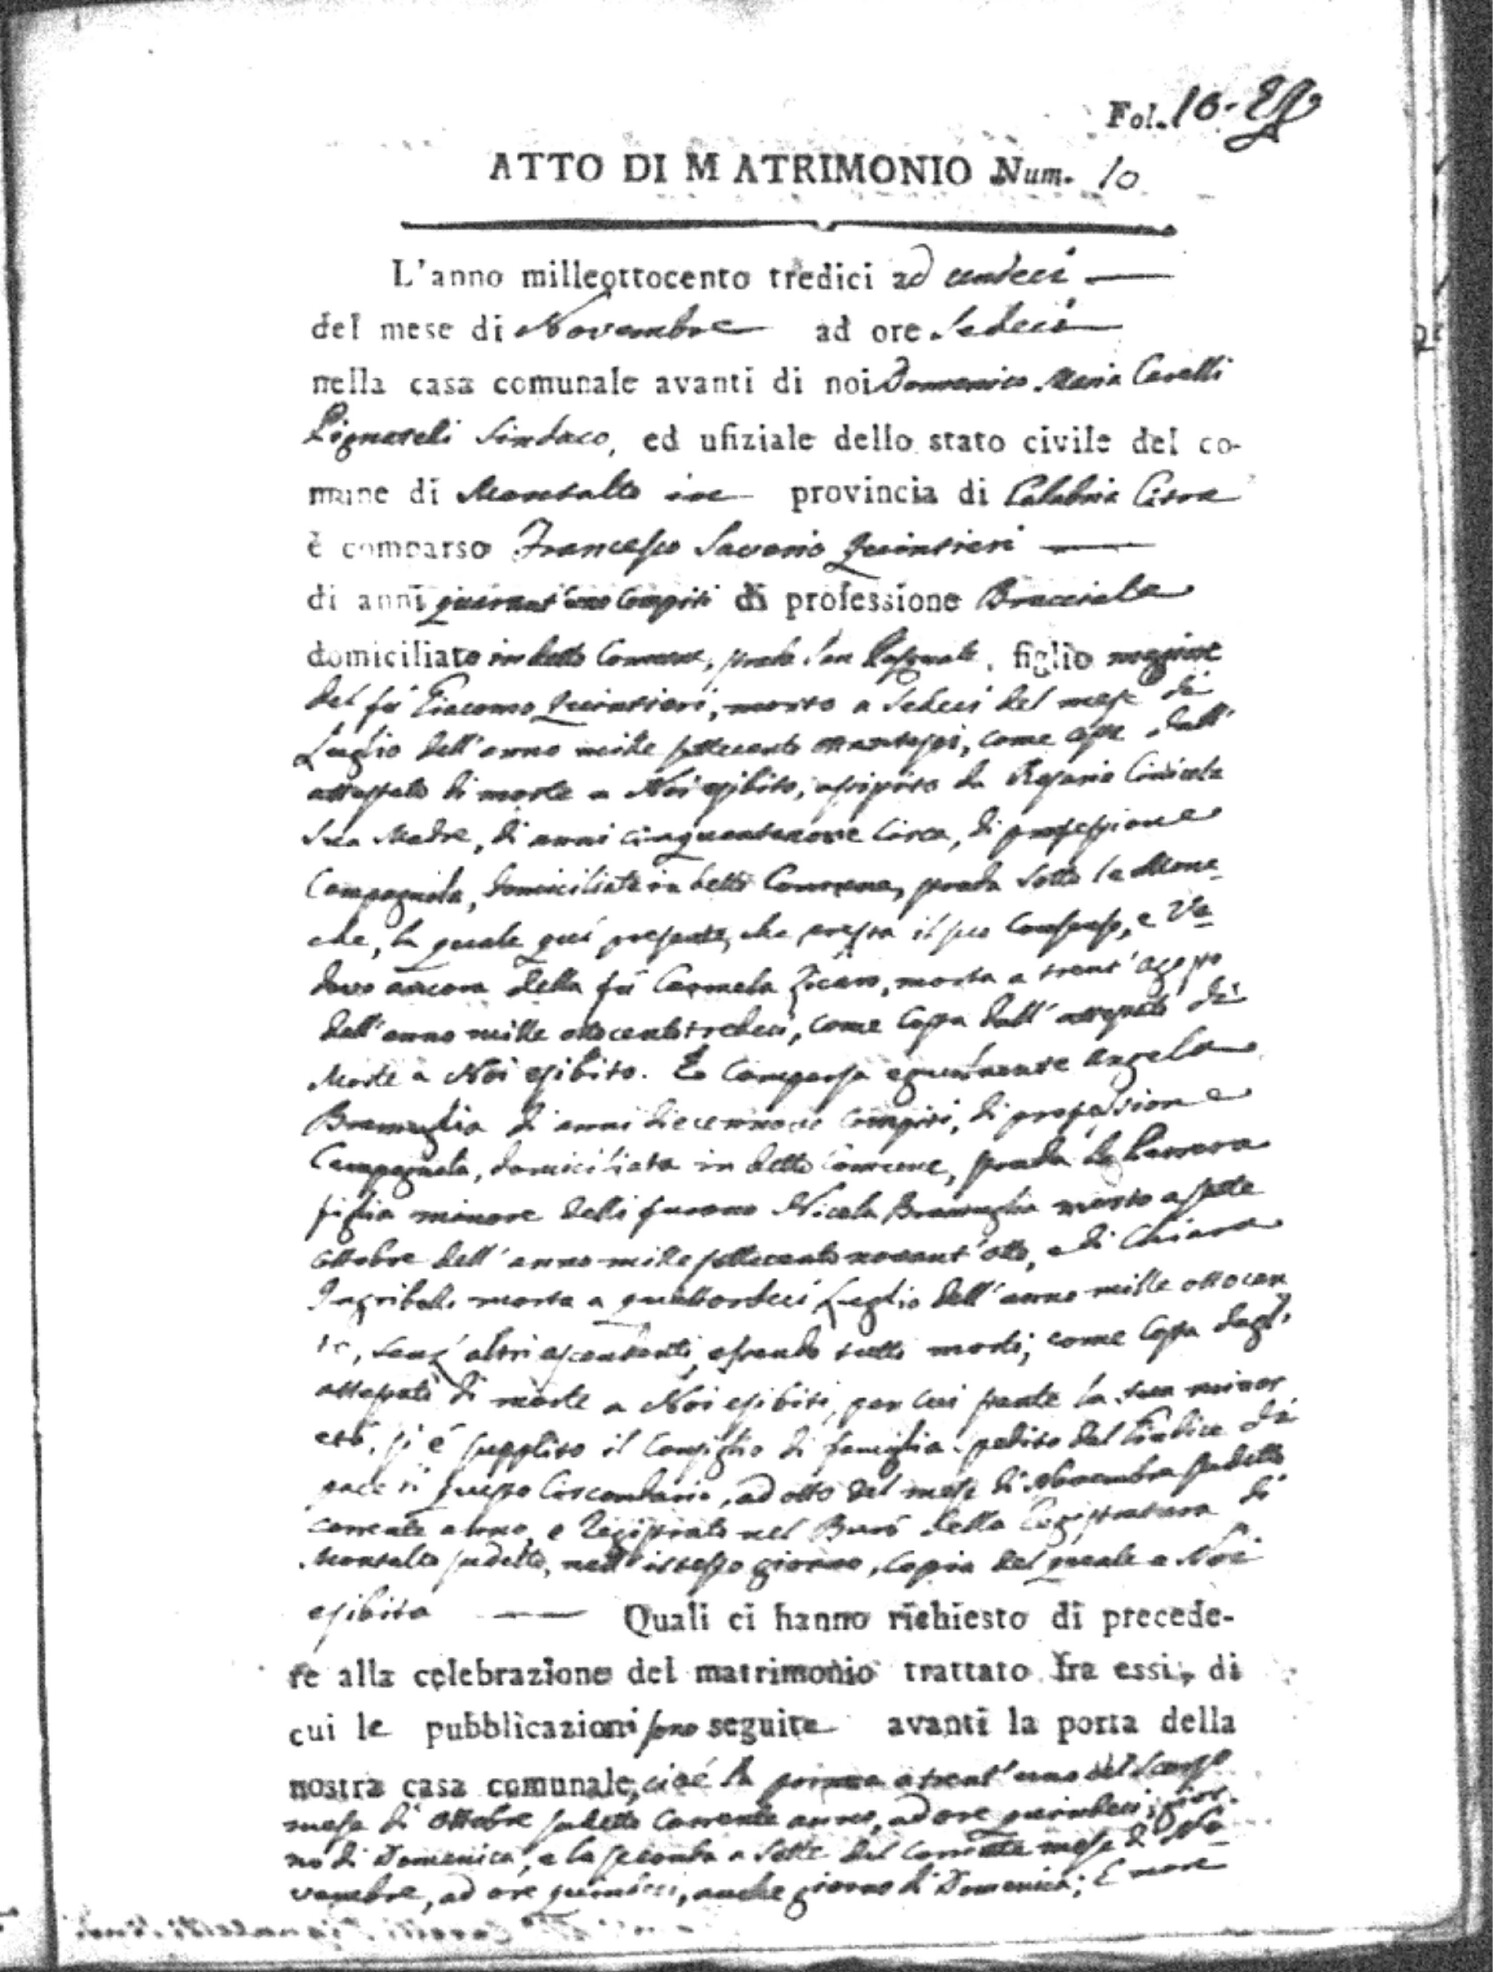 Fol. 10.
ATTO DI MATRIMONIO Num. 10
L'anno milleottocento tredici ad undeci
del mese di Novembre ad ore Sedeci
nella casa comunale avanti di noi Domenico Maria Cavalli
Pignateli Sindaco, ed ufiziale dello stato civile del co-
mune di Montalto in provincia di Calabria Citra
è comparso Francesco Saverio Quintieri
di anni quarant'uno compiti di professione Bracciale
domiciliato in detto Comune, strada San Pasquale, figlio maggiore
del fù Giacomo Quintieri, morto a Sedeci del mese di
Luglio dell'anno mille settecento ottantasei, come dall'
attestato di morte a Noi esibito, assistito da Rosaria
Sua Madre, di anni cinquantanove circa, di professione
Campagnola, domiciliata in detto Comune, strada Sotto le Mona-
che, la quale qui presente, che presta il suo Consenso, e Ve-
dovo ancora della fù Carmela Zicaro, morta a trent'agosto
dell'anno mille ottocento tredeci, come costa dall'attestato di
Morte a Noi esibito. È Comparsa egualmente Angela
Bramuglia di anni diecennove compiti, di professione
Campagnola, domiciliata in detto Comune, strada la
figlia minore delli furono Nicola Bramuglia morto a sette
ottobre dell'anno mille settecento novant'otto, e di Chiara
morta a quattordeci Luglio dell'anno mille ottocen
to, senz'altri ascendenti, essendo tutti morti; come costa dagl'
attestati di morte a Noi esibiti, per cui stante la sua minor
età, si è supplito il Consiglio di famiglia spedito dal Giudice di
pace di questo Circondario, ad otto del mese di Novembre sudetto
corrente anno, e Registrato nel Burò della Registratura di
Montalto sudetto, nell'istesso giorno, copia del quale a Noi
esibita Quali ci hanno richiesto di precede-
re alla celebrazione del matrimonio trattato fra essi, di
cui le pubblicazioni sono seguite avanti la porta della
nostra casa comunale, cioè la prima a trent'uno del scorso
mese di Ottobre sudetto corrente anno, ad ore quindeci, gior-
no di Domenica, e la seconda a Sette del corrente mese di No-
vembre, ad ore quindeci, anche giorno di Domenica; E non